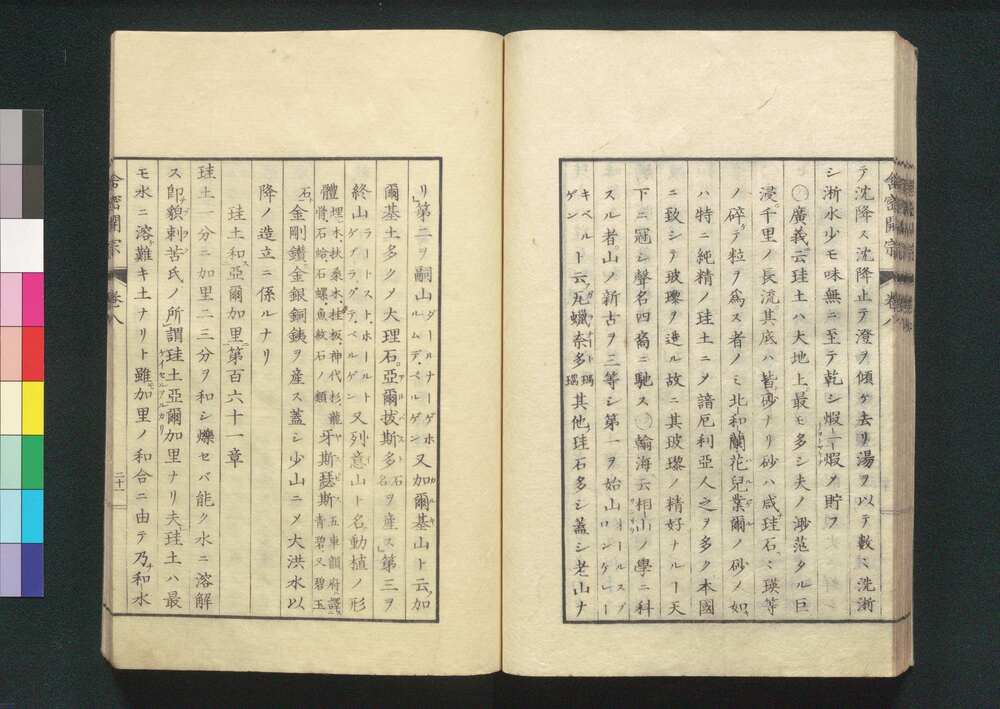 テ沈降ス沈降止テ澄ヲ傾ケ去リ湯ヲ以テ數〻洗淅
シ淅水少モ味無ニ至テ乾シ煆一煆ノ貯フ
廣義云珪土ハ大地上最モ多シ夫ノ渺茫タル巨
浸千里ノ長流其底ハ皆砂ナリ砂ハ咸珪石〻瑛等
ノ碎テ粒ヲ爲ス者ノミ北和蘭花兒業爾ノ砂ノ如
ハ特ニ純精ノ珪土ニメ諳厄利亞人之ヲ多ク本國
ニ致シテ玻瓈ヲ造ル故ニ其玻瓈ノ精好ナルー天
下ニ冠シ聲名四裔ニ馳ス輸海云相山ノ學ニ科
スル者山ノ新古ヲ三等シ第一ヲ始山
キベルト云凡蠟奈多瑪瑙其他珪石多シ蓋シ老山ナ
リ第二ヲ嗣山ダールナーゲホルムデベルゲン又加爾基山ト云加
爾基土多クメ大理石亞爾拔斯多石名ヲ産ス第三ヲ
終山ラートストホールトゲブラグテベルゲン又列意山ト名動植ノ形
體埋木扶桑木桂板神代杉龍骨石蛤石螺魚紋石ノ類牙斯瑟斯五車韻府譯青碧又碧玉
石金剛鑽金銀銅銕ヲ産ス蓋シ少山ニメ大洪水以
降ノ造立ニ係ルナリ
珪土和亞爾加里第百六十一章
珪土一分ニ加里二三分ヲ和シ爍セバ能ク水ニ溶解
ス卽貌剌苦氏ノ所謂珪土亞爾加里ナリ夫珪土ハ最
モ水ニ溶難キ土ナリト雖加里ノ和合ニ由テ乃和水
舎密開宗 卷八
二十一